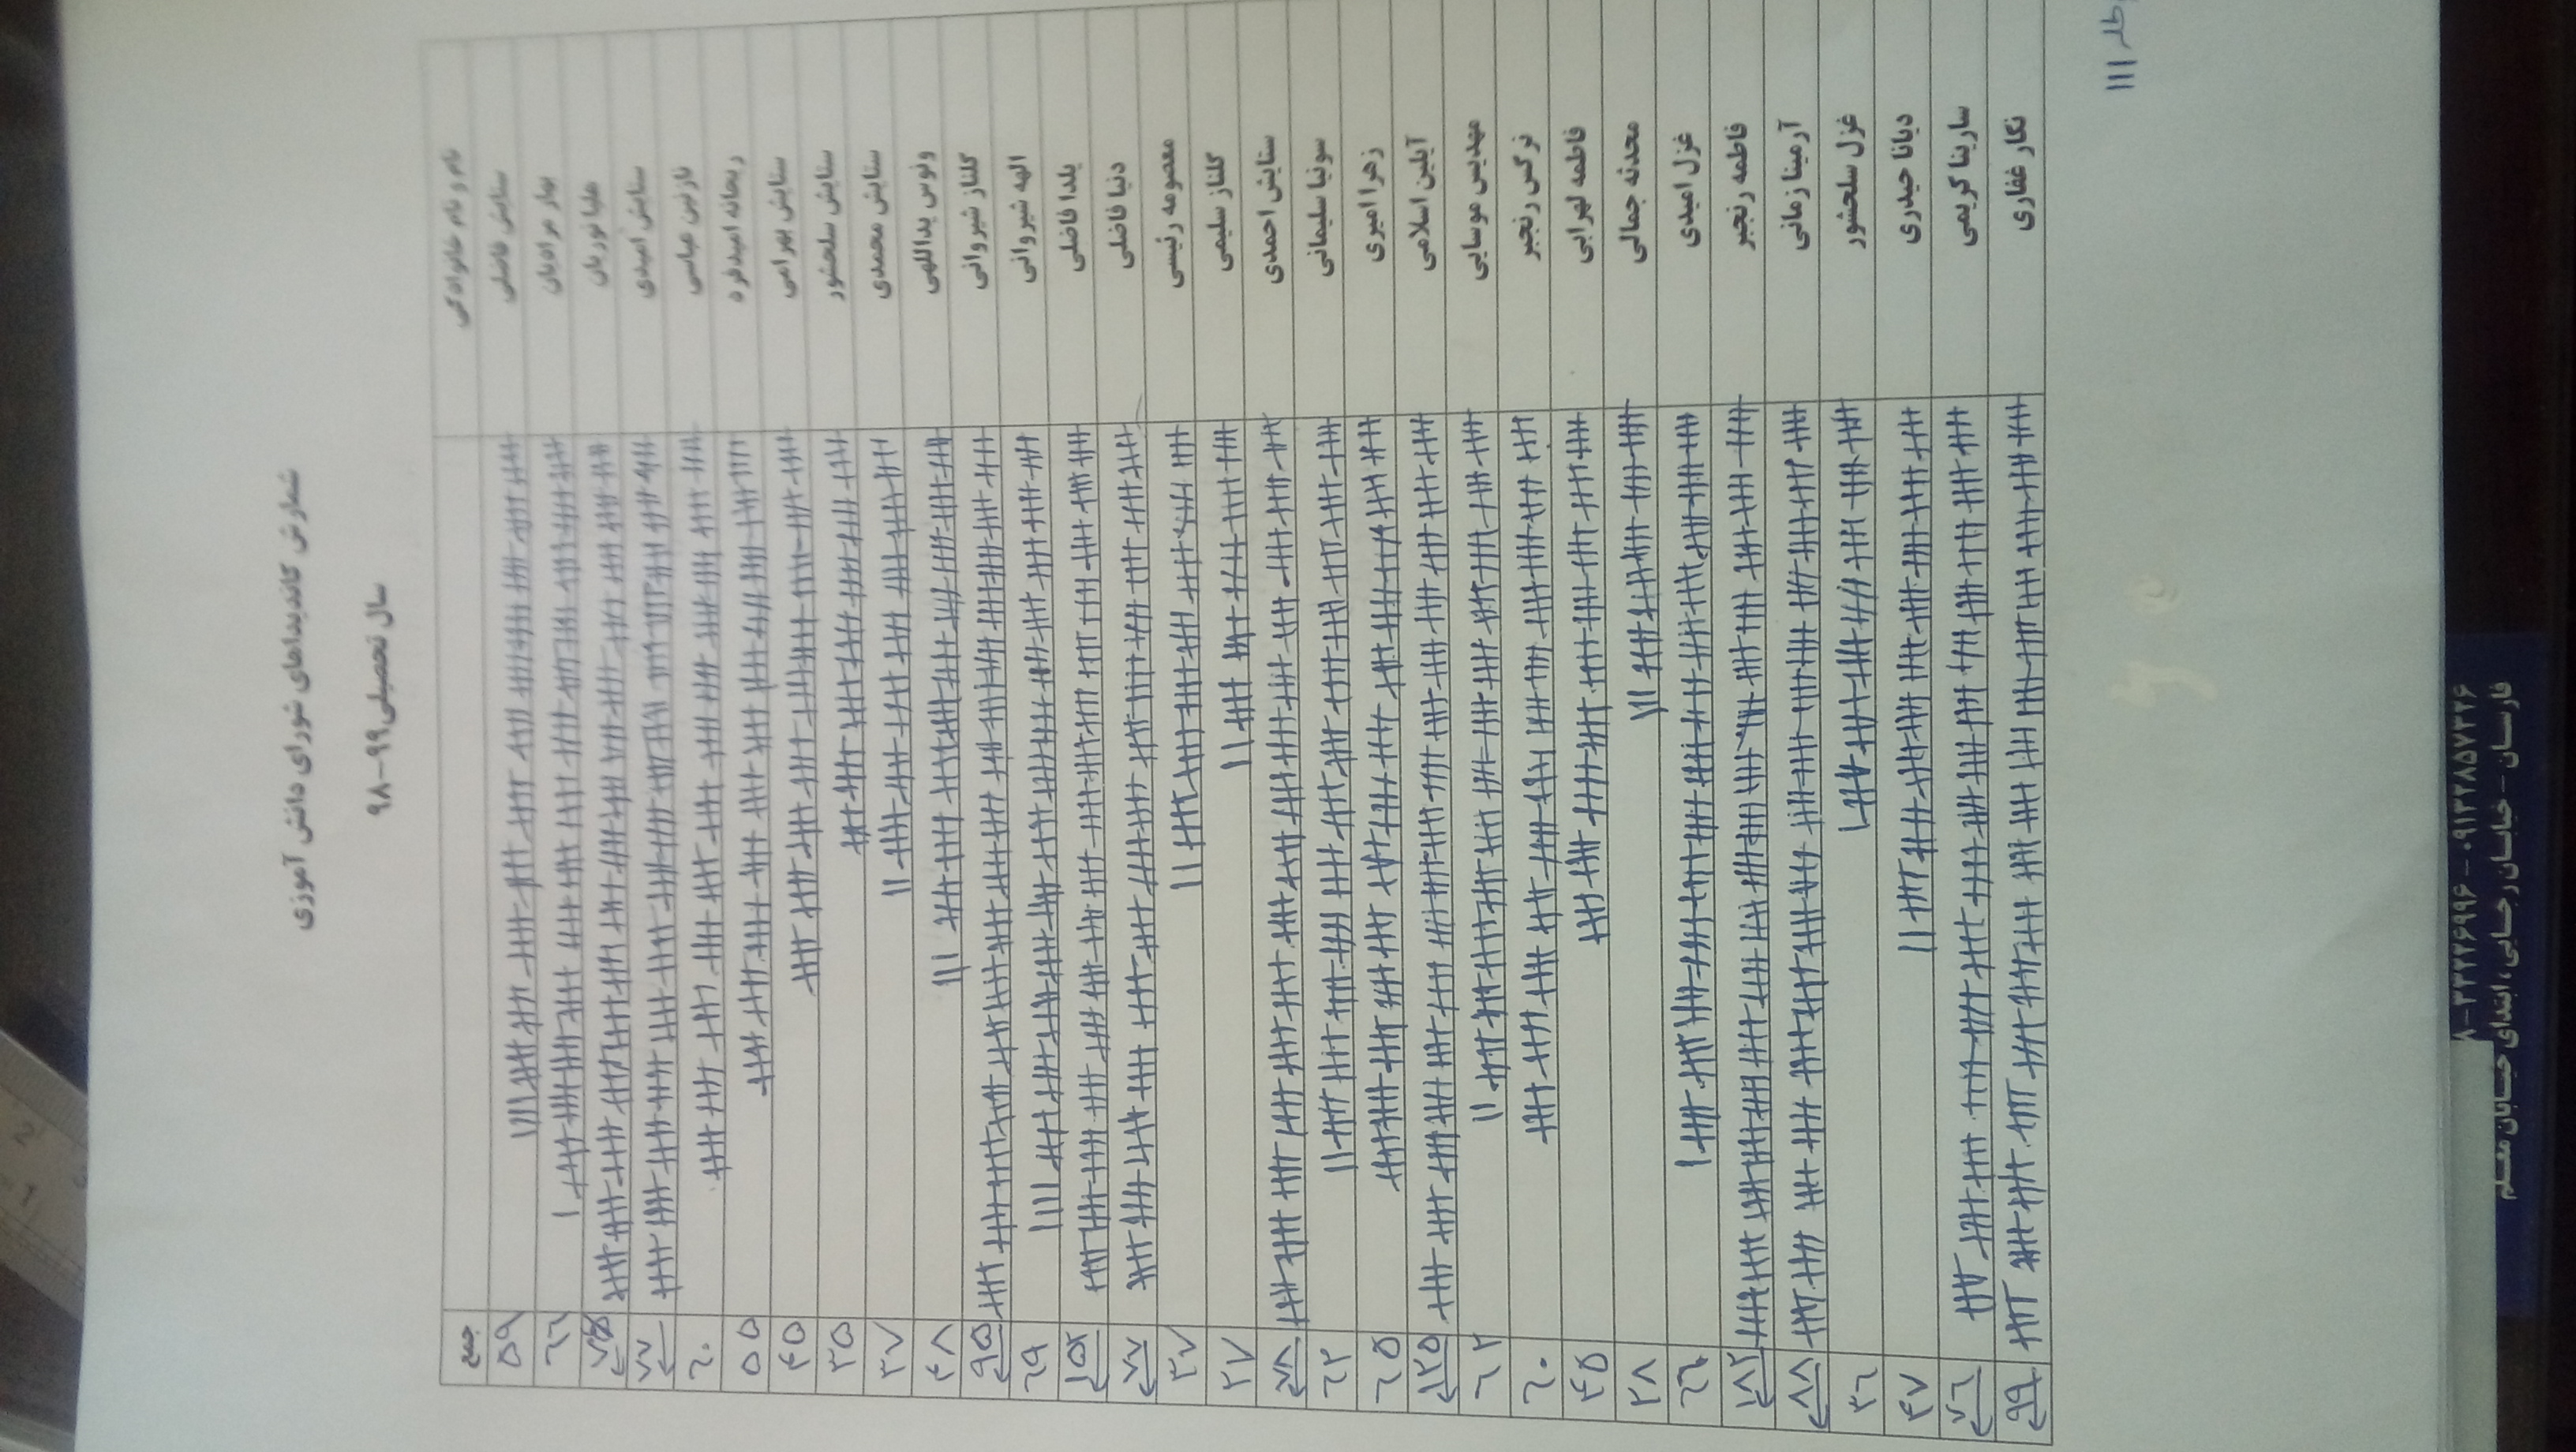 شمارش کاندیداهای شورای دانش آموزی
سال تحصیلی ۹۹-۹۸
نام و نام خانوادگی جمع
ستایش فاضلی ۵۹
بهار مرادیان ٦٦
هلیا نوریان
ستایش امیدی ۷۷
نازنین عباسی ٦۰
ریحانه امیدفره ۵۵
ستایش بهرامی ۴۵
ستایش سلحشور ۳۵
ستایش محمدی ۳۷
ونوس یداللهی ۴۸
گلناز شیروانی ۹۵
الهه شیروانی ٦۹
یلدا فاضلی
دنیا فاضلی ۷۷
معصومه رئیسی ۳۷
گلناز سلیمی ۲۷
ستایش احمدی ۷۸
سونیا سلیمانی ٦۲
زهرا امیری ٦۵
آیلین اسلامی ۱۲۵
مهدیس موسایی ٦۲
نرگس رنجبر ٦۰
فاطمه لهرابی ۴۵
محدثه جمالی ۲۸
غزل امیدی ٦٦
فاطمه رنجبر ۱۸۲
آرمینا زمانی ۸۸
غزل سلحشور ۳٦
دیانا حیدری ۴۷
سارینا کریمی ۷٦
نگار غفاری ۹۹
۳۳۲۲۶۹۹۶ - ۰۹۱۳۲۸۵۷۳۲۶
فارسان - خیابان رجایی، ابتدای خیابان معلم